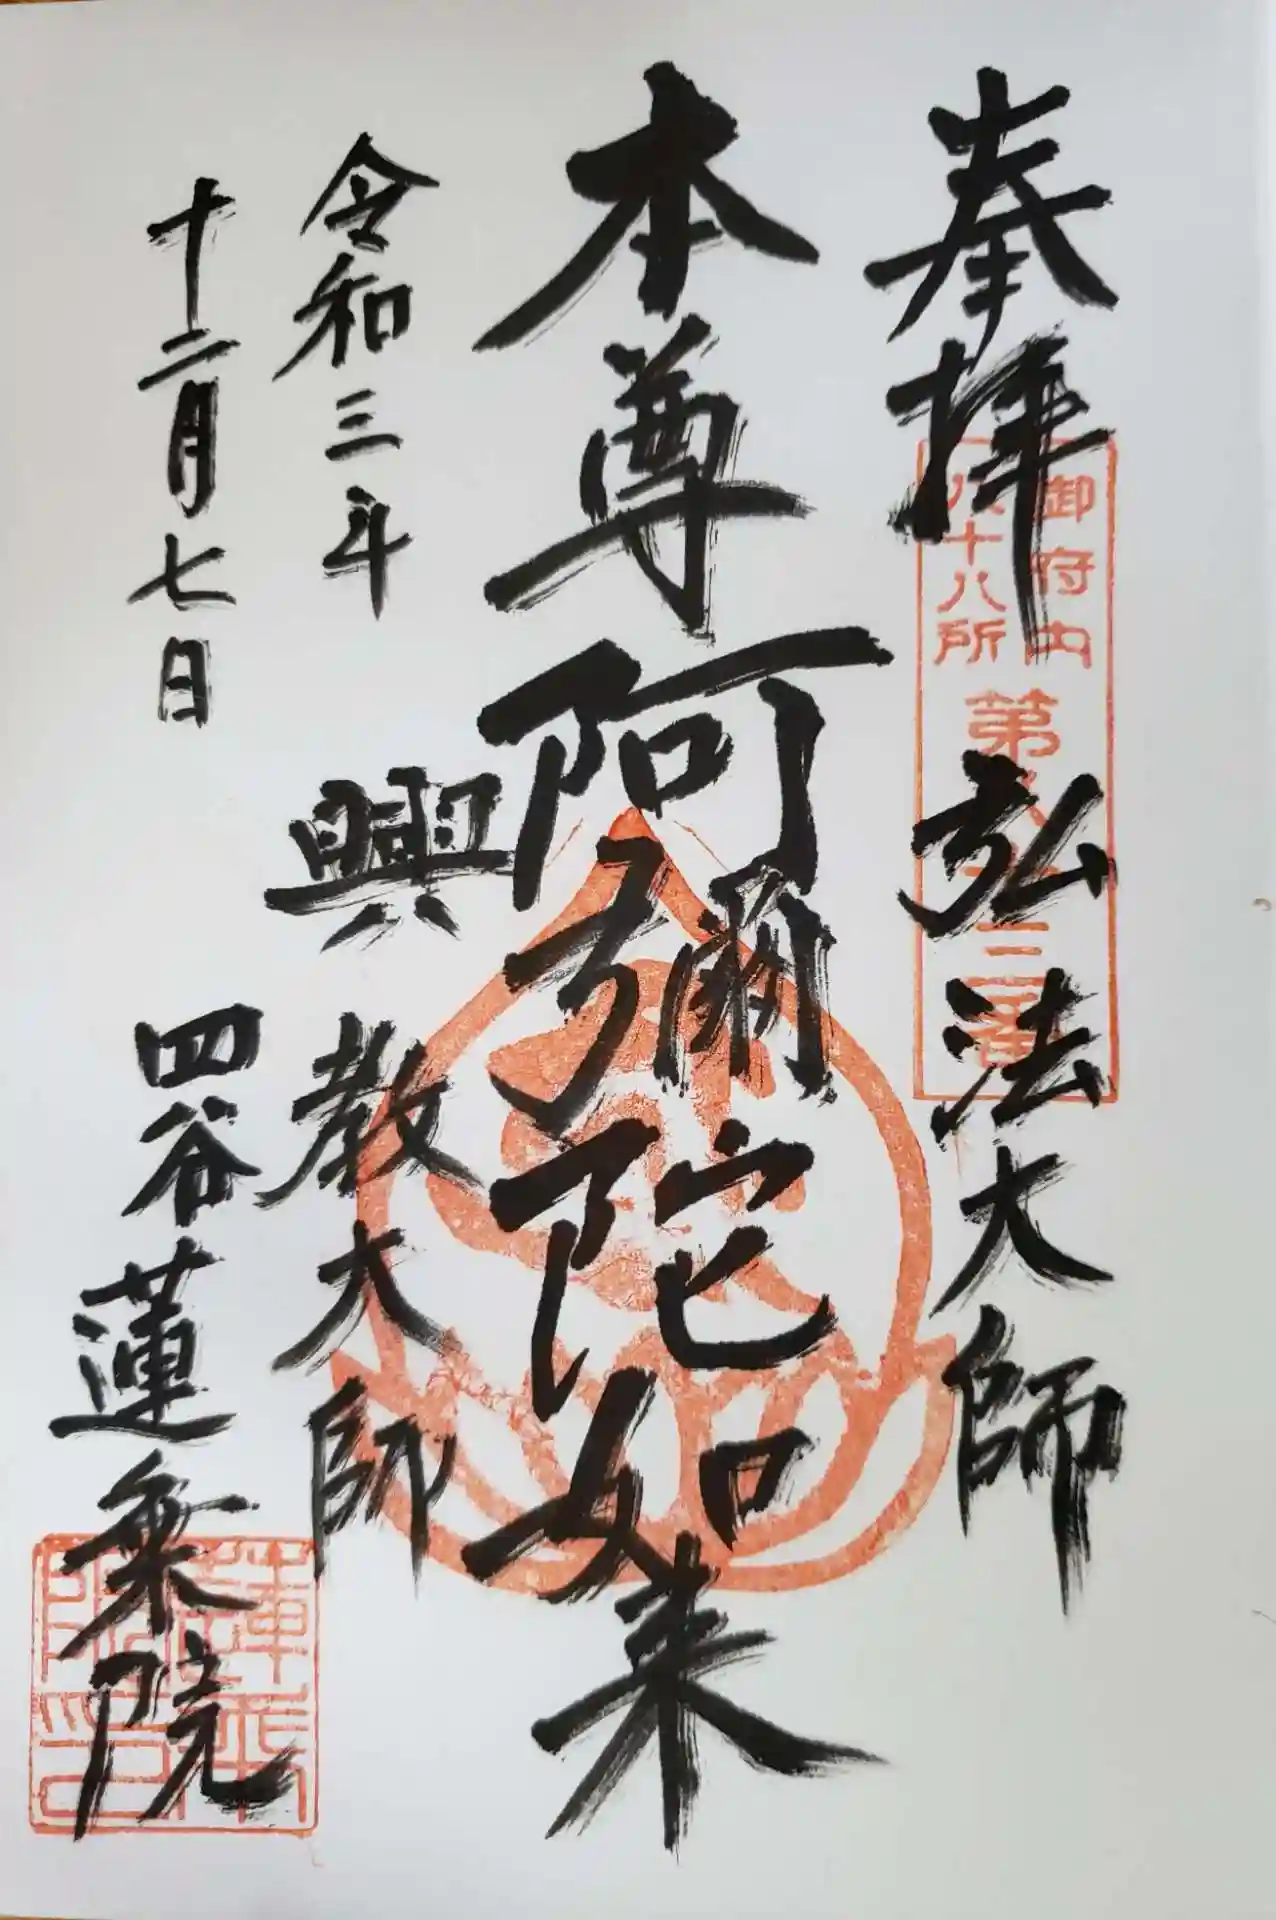 奉拝
弘法大師
御府内
八十八所
第八十三番
本尊阿彌陀如来
興教大師
令和三年
十二月七日
四谷蓮乗院
蓮乗
院印